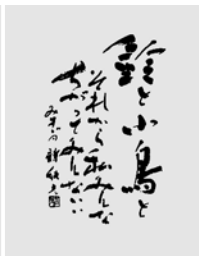 鈴と小鳥と
それから私みんな
ちがってみんないい